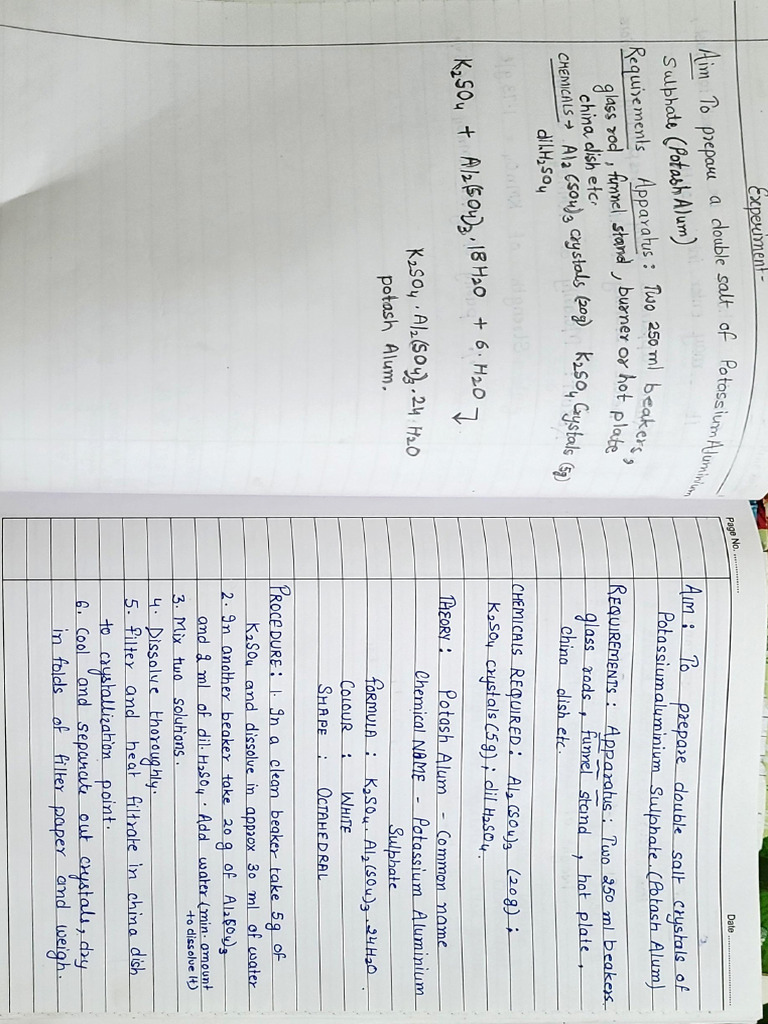 Experiment-
Aim To prepare a double salt of Potassium Aluminium
Sulphate (Potash Alum)
Requirements Apparatus: Two 250 ml beakers,
glass rod, funnel stand, burner or hot plate
china dish etc.
CHEMICALS → Al2(SO4)3 crystals (20g) K2SO4 Crystals (5g)
dil.H2SO4
K2SO4 + Al2(SO4)3.18H2O + 6.H2O ↓
K2SO4.Al2(SO4)3.24 H2O
potash Alum.
Page No. ............... Date ...............
AIM: To prepare double salt crystals of
Potassiumaluminium Sulphate.(Potash Alum)
REQUIREMENTS: Apparatus: Two 250 ml beakers,
glass rods, funnel stand, hot plate,
china dish etc.
CHEMICALS REQUIRED: Al2(SO4)3 (20g);
K2SO4 crystals (5g); dil H2SO4.
THEORY: Potash Alum - Common name
Chemical NAME - Potassium Aluminium
Sulphate
FORMULA: K2SO4.Al2(SO4)3.24H2O.
COLOUR: WHITE
SHAPE: OCTAHEDRAL
PROCEDURE: 1. In a clean beaker take 5g of
K2SO4 and dissolve in approx 30 ml of water
2. In another beaker take 20g of Al2(SO4)3
and 2 ml of dil.H2SO4. Add water (min. amount
to dissolve it)
3. Mix two solutions.
4. Dissolve thoroughly.
5. Filter and heat filtrate in china dish
to crystallization point.
6. Cool and separate out crystals, dry
in folds of filter paper and weigh.